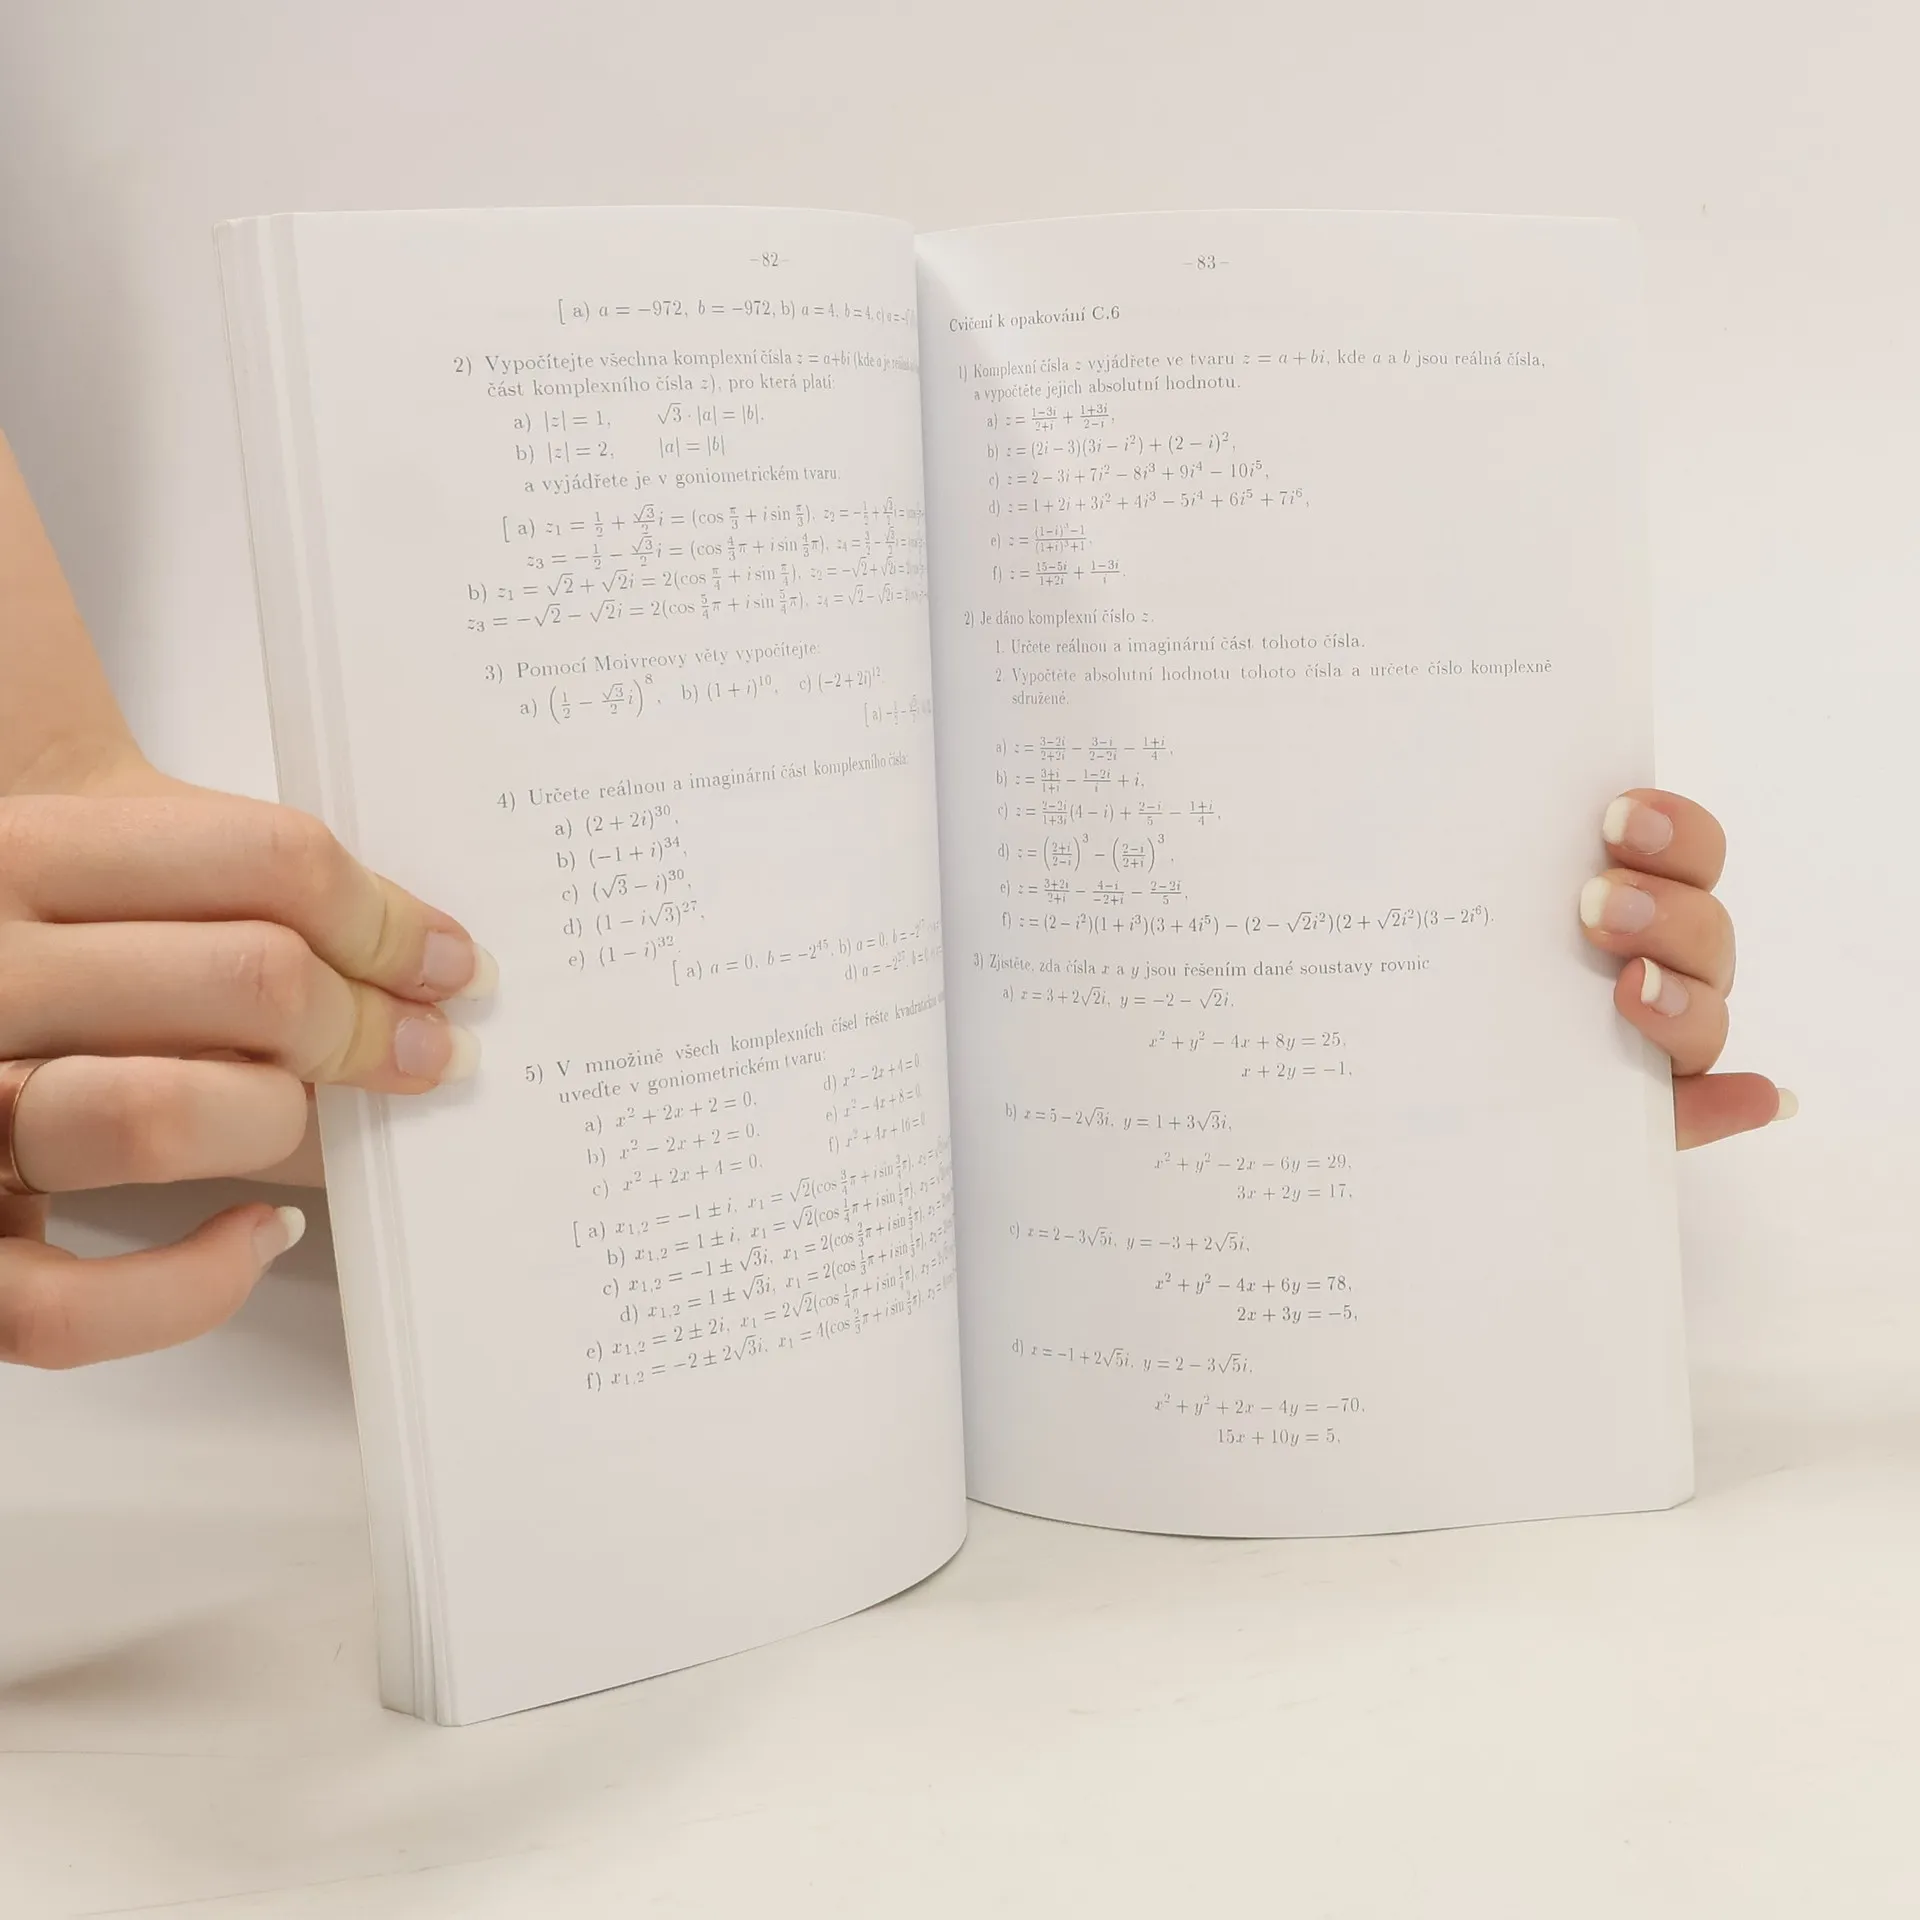 –82–
[ a) a = −972, b = −972, b) a = 4, b = 4, c)
2) Vypočítejte všechna komplexní čísla z = a+bi (kde a je
část komplexního čísla z), pro která platí:
a) |z| = 1, √3 · |a| = |b|,
b) |z| = 2, |a| = |b|
a vyjádřete je v goniometrickém tvaru.
[ a) z₁ = 1/2 + √3/2 i = (cos π/3 + i sin π/3), z₂ =
z₃ = −1/2 − √3/2 i = (cos 4/3 π + i sin 4/3 π), z₄ =
b) z₁ = √2 + √2i = 2(cos π/4 + i sin π/4), z₂ = −√2 + √2i =
z₃ = −√2 − √2i = 2(cos 5/4 π + i sin 5/4 π), z₄ = √2 − √2i =
3) Pomocí Moivreovy věty vypočítejte:
a) (1/2 − √3/2 i)⁸, b) (1 + i)¹⁰, c) (−2 + 2i)¹².
[ a)
4) Určete reálnou a imaginární část komplexního čísla:
a) (2 + 2i)³⁰,
b) (−1 + i)³⁴,
c) (√3 − i)³⁰,
d) (1 − i√3)²⁷,
e) (1 − i)³².
[ a) a = 0, b = −2⁴⁵, b) a = 0, b =
d) a =
5) V množině všech komplexních čísel řešte
uveďte v goniometrickém tvaru:
a) x² + 2x + 2 = 0, d) x² − 2x + 4 = 0
b) x² − 2x + 2 = 0, e) x² − 4x + 8 = 0
c) x² + 2x + 4 = 0, f) x² + 4x + 16 = 0
[ a) x₁,₂ = −1 ± i, x₁ = √2(cos 3/4 π + i sin 3/4 π),
b) x₁,₂ = 1 ± i, x₁ = √2(cos 1/4 π + i sin 1/4 π),
c) x₁,₂ = −1 ± √3i, x₁ = 2(cos 2/3 π + i sin 2/3 π),
d) x₁,₂ = 1 ± √3i, x₁ = 2(cos 1/3 π + i sin 1/3 π),
e) x₁,₂ = 2 ± 2i, x₁ = 2√2(cos 1/4 π + i sin 1/4 π),
f) x₁,₂ = −2 ± 2√3i, x₁ = 4(cos 2/3 π + i sin 2/3 π),
–83–
Cvičení k opakování C.6
1) Komplexní čísla z vyjádřete ve tvaru z = a + bi, kde a a b jsou reálná čísla,
a vypočtěte jejich absolutní hodnotu.
a) z = (1−3i)/(2+i) + (1+3i)/(2−i),
b) z = (2i − 3)(3i − i²) + (2 − i)²,
c) z = 2 − 3i + 7i² − 8i³ + 9i⁴ − 10i⁵,
d) z = 1 + 2i + 3i² + 4i³ − 5i⁴ + 6i⁵ + 7i⁶,
e) z = ((1−i)³−1)/((1+i)³+1),
f) z = (15−5i)/(1+2i) + (1−3i)/i.
2) Je dáno komplexní číslo z.
1. Určete reálnou a imaginární část tohoto čísla.
2. Vypočtěte absolutní hodnotu tohoto čísla a určete číslo komplexně
sdružené.
a) z = (3−2i)/(2+2i) − (3−i)/(2−2i) − (1+i)/4,
b) z = (3+i)/(1+i) − (1−2i)/i + i,
c) z = (2−2i)/(1+3i)(4 − i) + (2−i)/5 − (1+i)/4,
d) z = ((2+i)/(2−i))³ − ((2−i)/(2+i))³,
e) z = (3+2i)/(2+i) − (4−i)/(−2+i) − (2−2i)/5,
f) z = (2 − i²)(1 + i³)(3 + 4i⁵) − (2 − √2i²)(2 + √2i²)(3 − 2i⁶).
3) Zjistěte, zda čísla x a y jsou řešením dané soustavy rovnic
a) x = 3 + 2√2i, y = −2 − √2i,
x² + y² − 4x + 8y = 25,
x + 2y = −1,
b) x = 5 − 2√3i, y = 1 + 3√3i,
x² + y² − 2x − 6y = 29,
3x + 2y = 17,
c) x = 2 − 3√5i, y = −3 + 2√5i,
x² + y² − 4x + 6y = 78,
2x + 3y = −5,
d) x = −1 + 2√5i, y = 2 − 3√5i,
x² + y² + 2x − 4y = −70,
15x + 10y = 5,